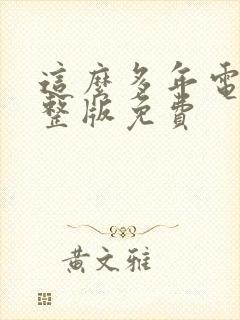 這麼多年電
整版免費
黃文雅